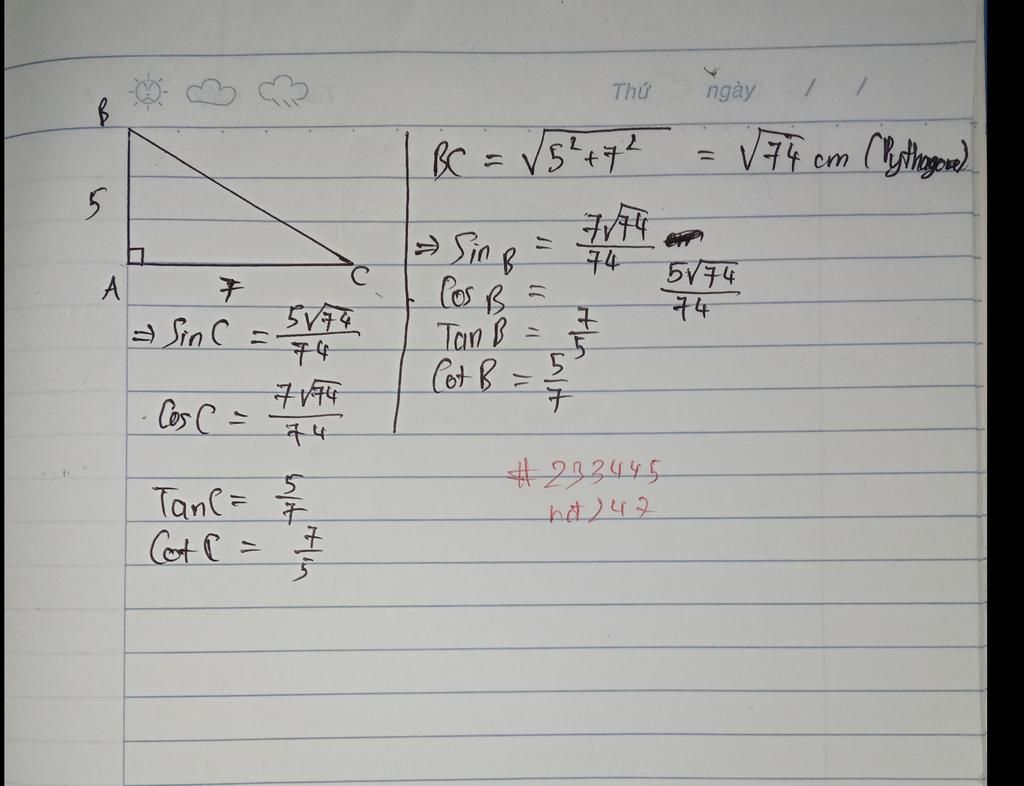 Thứ ngày / /
B
5
A 7 C
BC = √(5²+7²) = √74 cm (Pythagore)
⇒ Sin B = 7√74/74
Cos B = 5√74/74
Tan B = 7/5
Cot B = 5/7
⇒ Sin C = 5√74/74
Cos C = 7√74/74
Tan C = 5/7
Cot C = 7/5
#233445